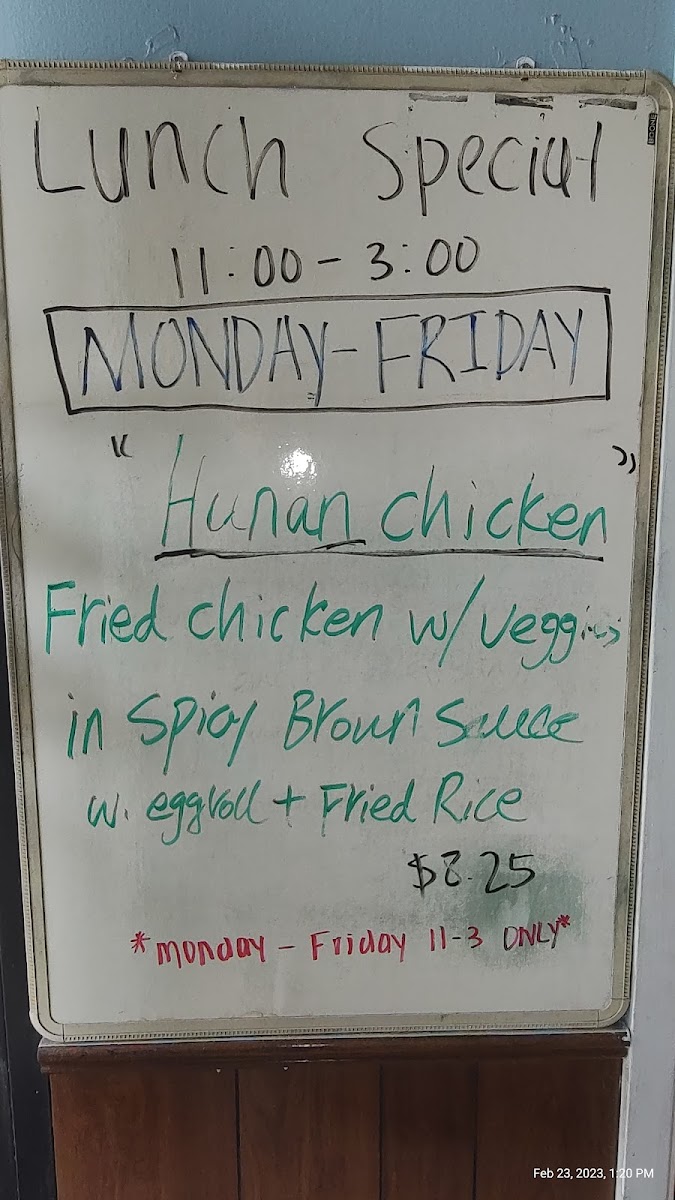 Lunch Special
11:00 - 3:00
MONDAY-FRIDAY
"Hunan chicken"
Fried chicken w/veggies
in Spicy Brown Sauce
w. eggroll + Fried Rice
$8.25
*Monday - Friday 11-3 ONLY*
BOONE
Feb 23, 2023, 1:20 PM